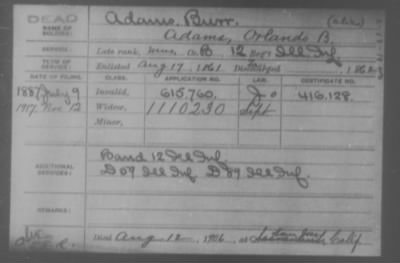 DEAD
NAME OF SOLDIER: Adams, Burr. (alias)
Adams, Orlando B.
SERVICE: Late rank, Mus, Co. B, 12 Reg't Ill Inf.
TERM OF SERVICE: Enlisted Aug 17, 1861, Discharged , 186
DATE OF FILING. CLASS. APPLICATION NO. LAW. CERTIFICATE NO.
1887 July 9 Invalid, 615,760. 416.128.
1917. Nov 12 Widow, 1110230 Sept
Minor,
ADDITIONAL SERVICES: Band 12 Ill Inf.
D 07 Ill Inf. D 89 Ill Inf.
REMARKS:
Died Aug 12, 1906, at Calif